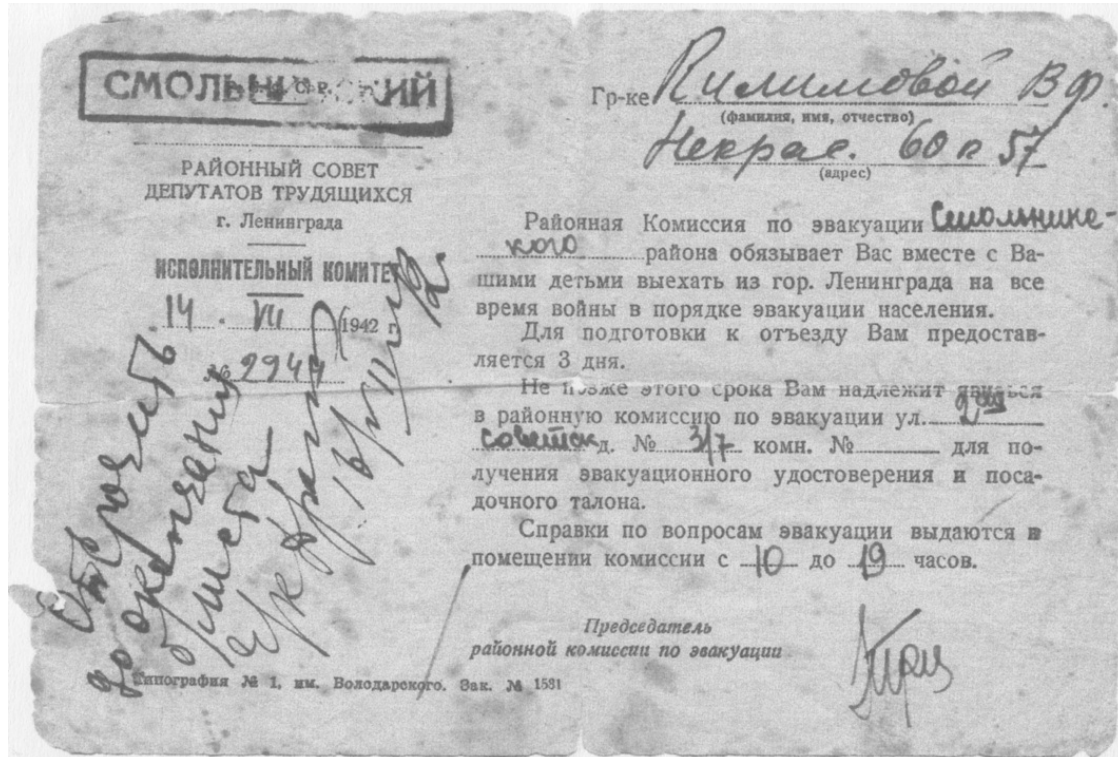 СМОЛЬНИНСКИЙ
РАЙОННЫЙ СОВЕТ
ДЕПУТАТОВ ТРУДЯЩИХСЯ
г. Ленинграда
ИСПОЛНИТЕЛЬНЫЙ КОМИТЕТ
14 VII 1942 г.
№ 2944
Отсрочить
до окончания
Типография № 1, им. Володарского. Зак. № 1531
Гр-ке Килимовой В Ф.
(фамилия, имя, отчество)
Некрас. 60 к 57
(адрес)
Районная Комиссия по эвакуации Смольнинс-
кого района обязывает Вас вместе с Ва-
шими детьми выехать из гор. Ленинграда на все
время войны в порядке эвакуации населения.
Для подготовки к отъезду Вам предостав-
ляется 3 дня.
Не позже этого срока Вам надлежит явиться
в районную комиссию по эвакуации ул. 2ая
Советск д. № 3/7 комн. № для по-
лучения эвакуационного удостоверения и поса-
дочного талона.
Справки по вопросам эвакуации выдаются в
помещении комиссии с 10 до 19 часов.
Председатель
районной комиссии по эвакуации